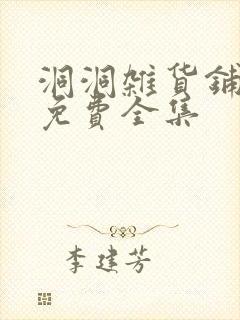 洞洞雜貨鋪
免費全集
李建芳